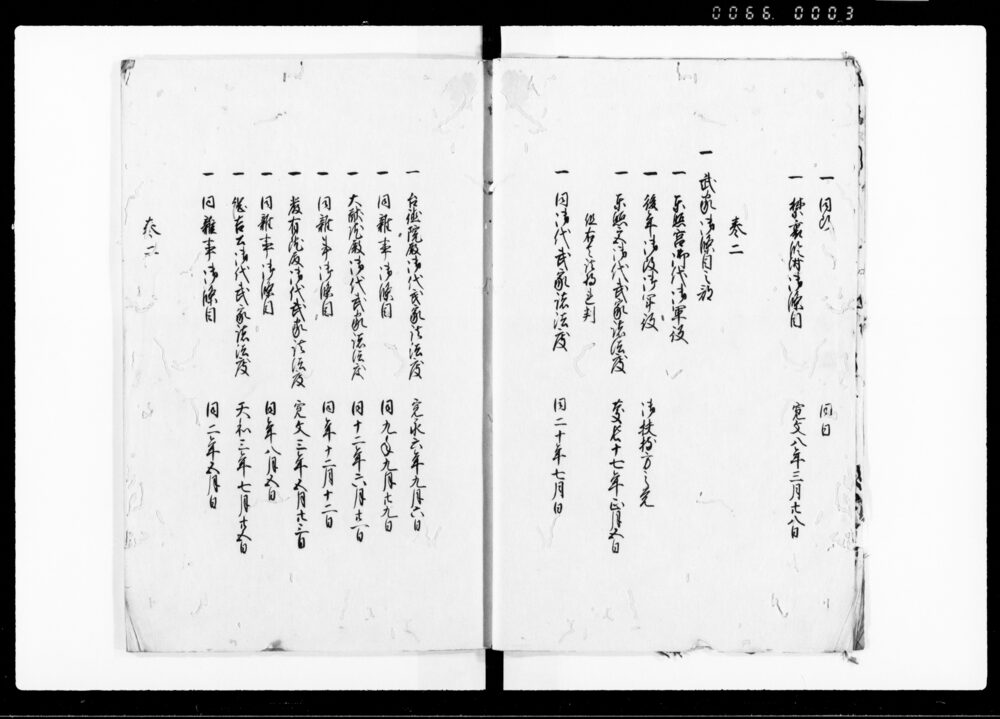 0066 0003
一 同断 同日
一 禁裏附御条目 寛文八年三月廿八日
巻二
一 武家御条目之部
一 東照宮御代御軍役
一 後年御改御軍役 御扶持方之覚
一 東照宮御代武家諸法度 慶長十七年正月五日
但有之諸将連判
一 同御代武家諸法度 同二十年七月日
一 台徳院殿御代武家諸法度 寛永六年九月六日
一 同雑事御条目 同九年九月廿九日
一 大猷院殿御代武家諸法度 同十二年六月廿一日
一 同雑事御条目 同年十二月十二日
一 厳有院殿御代武家諸法度 寛文三年五月廿三日
一 同雑事御条目 同年八月五日
一 憲台公御代武家諸法度 天和三年七月廿五日
一 同雑事御条目 同二年五月日
巻二